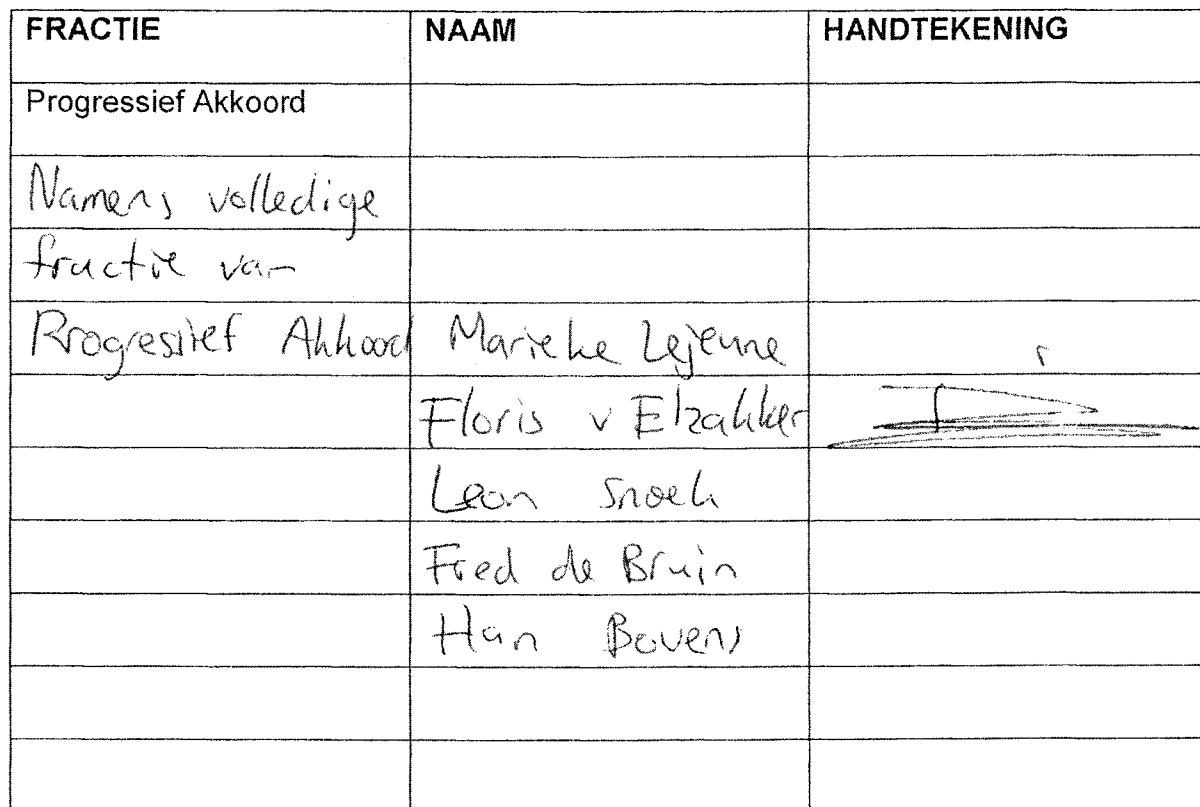 FRACTIE NAAM HANDTEKENING
Progressief Akkoord
Namens volledige
fractie van
Progressief Akkoord Marieke Lejeune
Floris v Elzakker
Leon Snoek
Fred de Bruin
Han Bovens